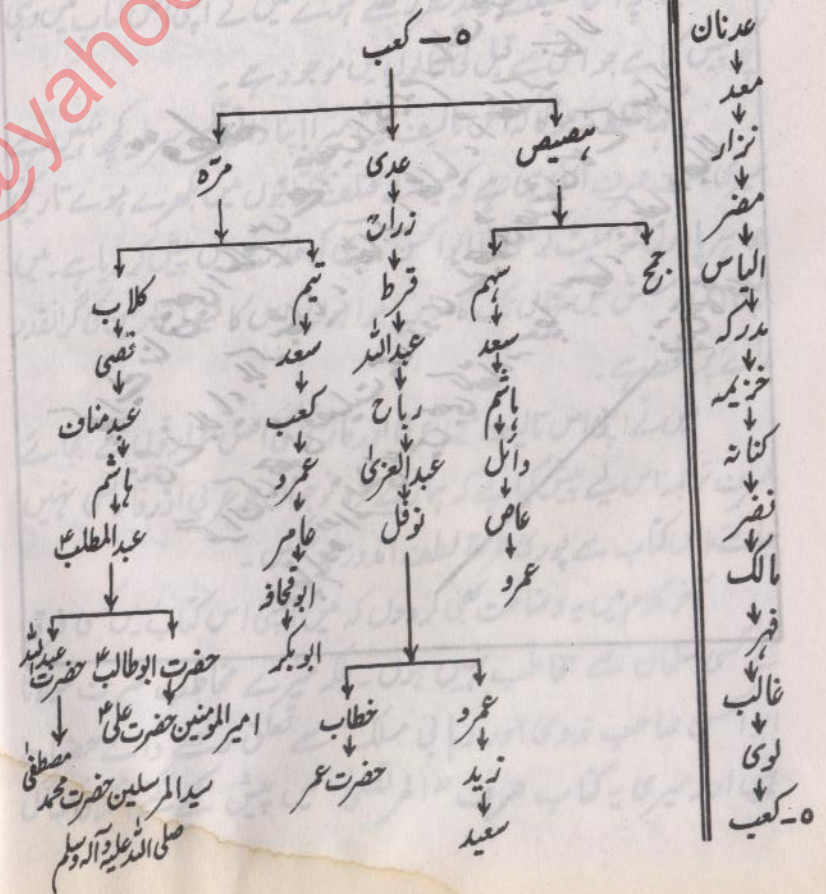 عدنان
معد
نزار
مضر
الیاس
مدرکہ
خزیمہ
کنانہ
نضر
مالک
فہر
غالب
لوی
۵-کعب
۵-کعب
ہصیص
عدی
مرّہ
جمح
سہم
سعد
ہاشم
وائل
عاص
عمرو
زراح
قرط
عبداللہ
رباح
عبدالعزیٰ
نوفل
عمرو
زید
سعید
خطاب
حضرت عمر
تیم
سعد
کعب
عمرو
عامر
ابوقحافہ
ابوبکر
کلاب
قصی
عبدمناف
ہاشم
عبدالمطلبؑ
حضرت ابوطالبؑ
امیرالمومنین حضرت علیؑ
حضرت عبداللہ
سیدالمرسلین حضرت محمد مصطفیٰ
صلی اللہ علیہ وآلہ وسلم
@yahoo